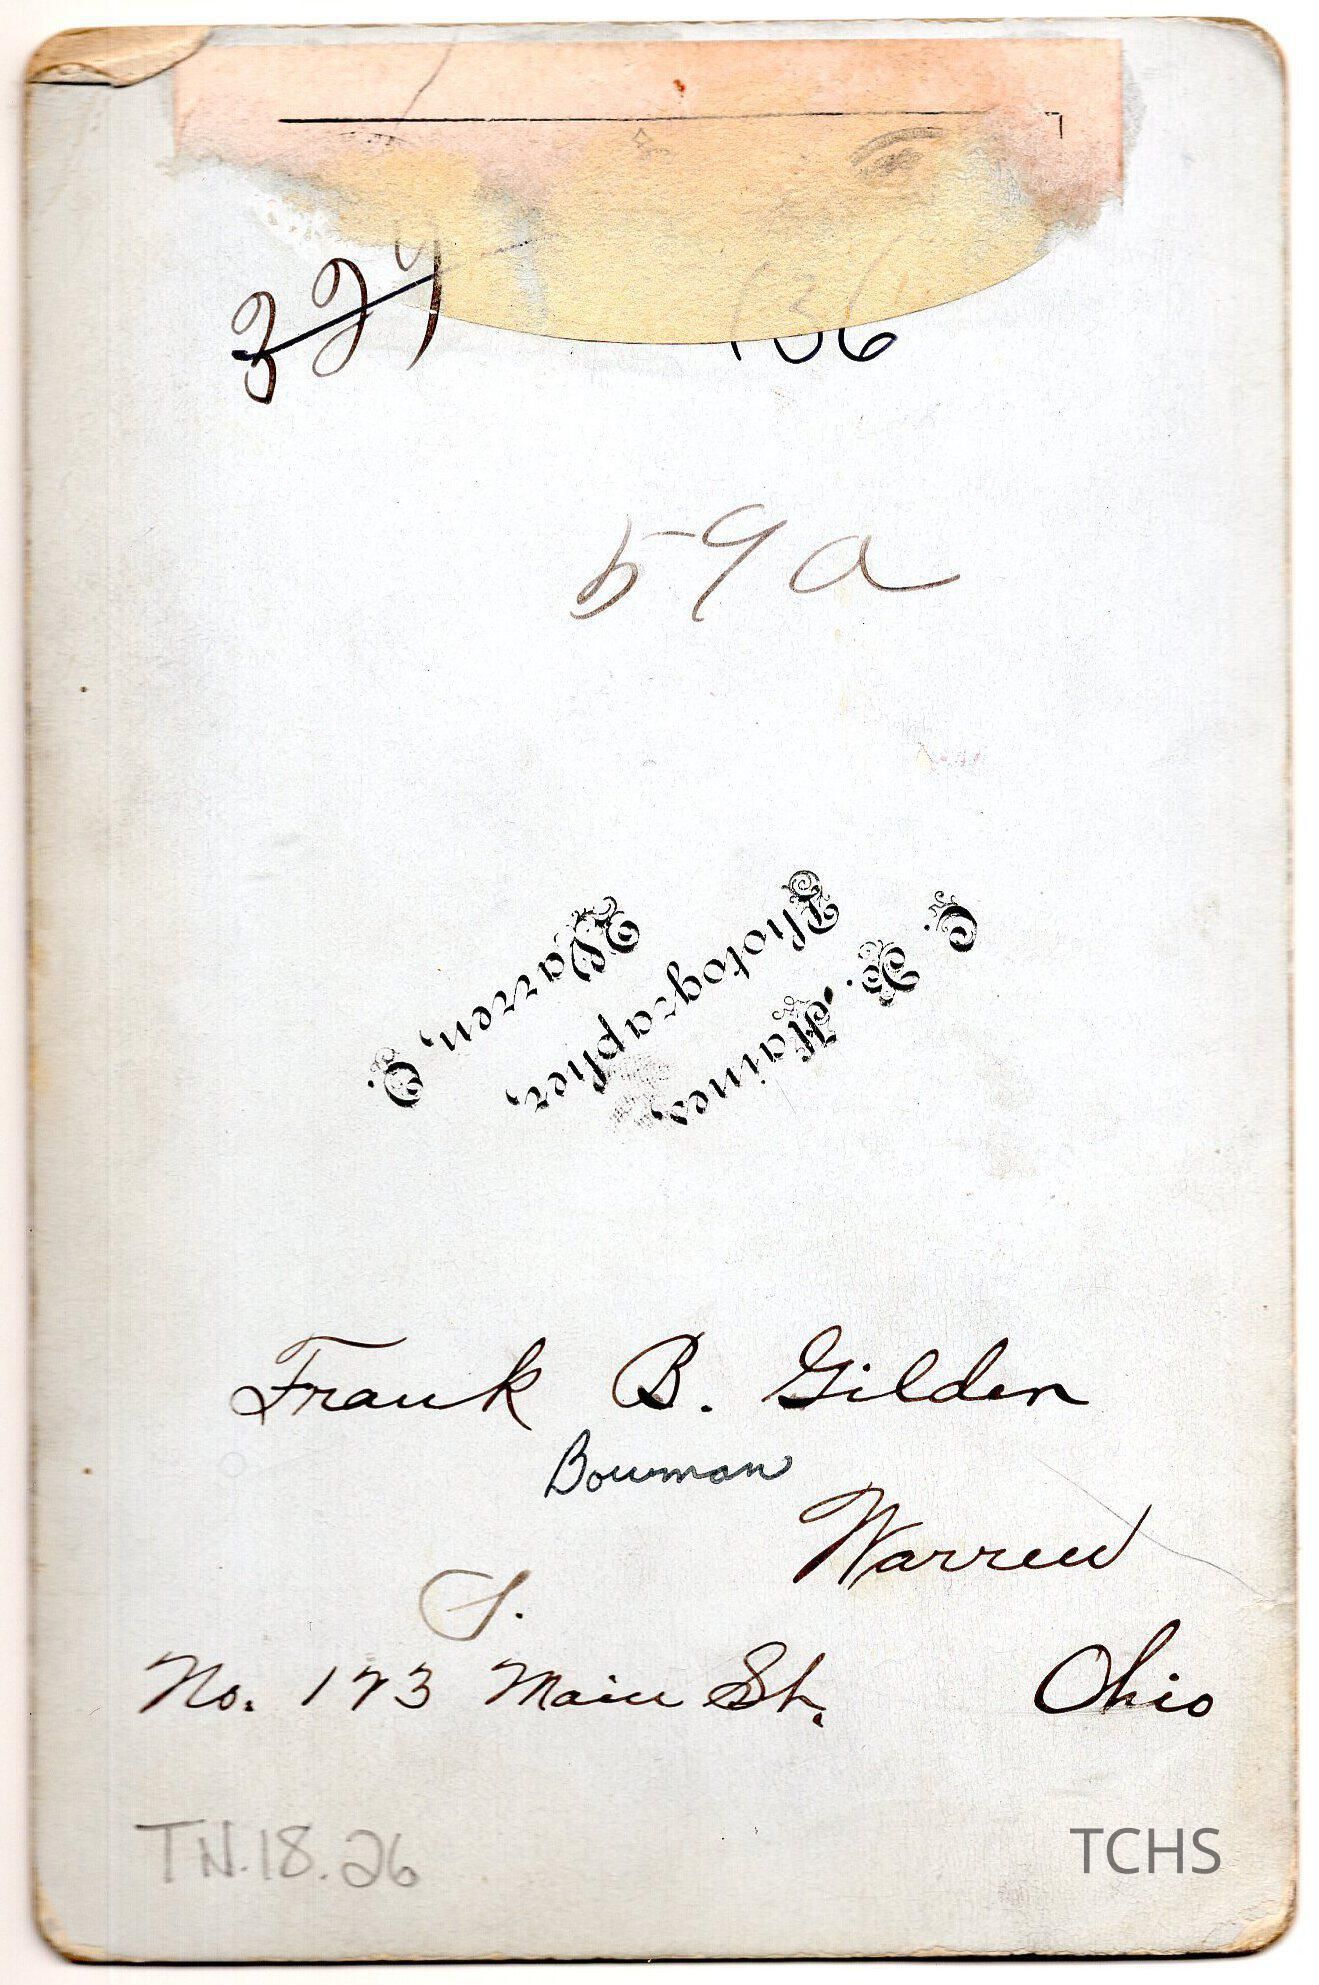 329
59a
C. R. Haines,
Photographer,
Warren, O.
Frank B. Gilden
Bowman
Warren
S.
No. 123 Main St.
Ohio
TN.18.26
TCHS